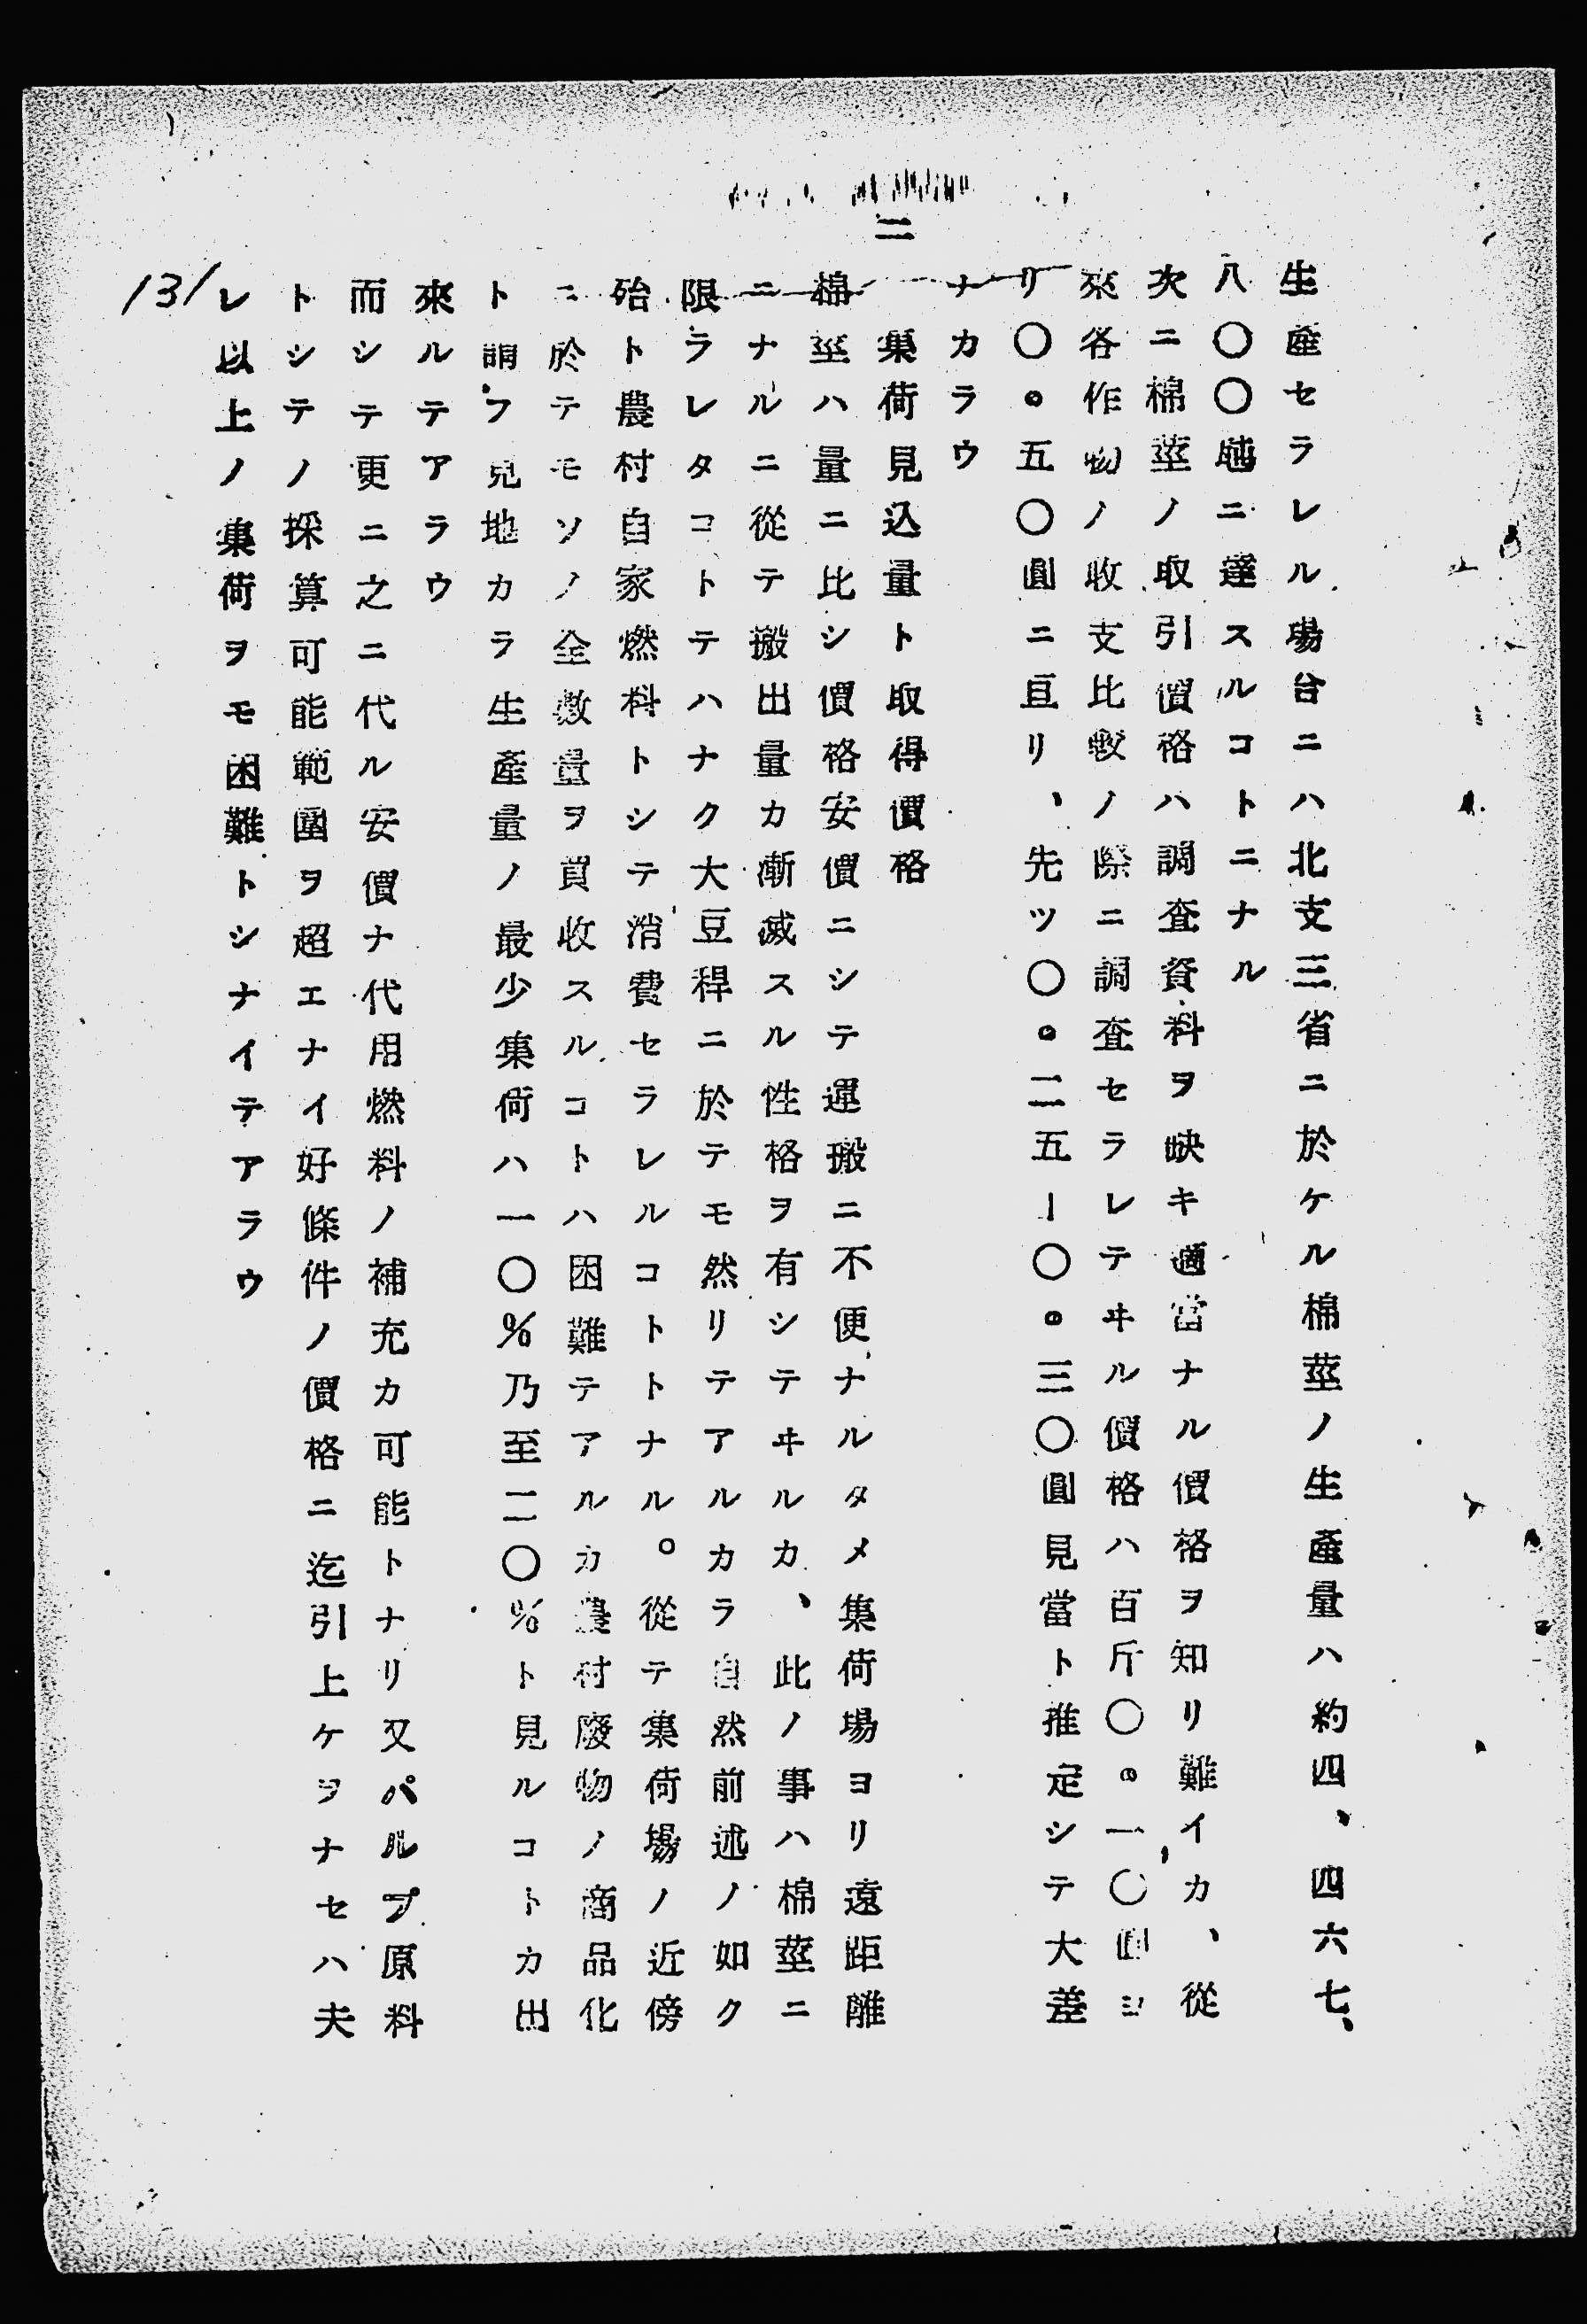 生産セラレル場合ニハ北支三省ニ於ケル棉莖ノ生産量ハ約四、四六七、
八〇〇瓲ニ達スルコトニナル
次ニ棉莖ノ取引價格ハ調査資料ヲ缺キ適當ナル價格ヲ知リ難イカ、從
來各作物ノ收支比較ノ際ニ調査セラレテヰル價格ハ百斤〇・一〇圓ヨ
リ〇・五〇圓ニ亘リ、先ツ〇・二五ー〇・三〇圓見當ト推定シテ大差
ナカラウ
二 集荷見込量ト取得價格
棉莖ハ量ニ比シ價格安價ニシテ運搬ニ不便ナルタメ集荷場ヨリ遠距離
ニナルニ從テ搬出量カ漸減スル性格ヲ有シテヰルカ、此ノ事ハ棉莖ニ
限ラレタコトテハナク大豆稈ニ於テモ然リテアルカラ自然前述ノ如ク
殆ト農村自家燃料トシテ消費セラレルコトトナル。從テ集荷場ノ近傍
ニ於テモソノ全數量ヲ買收スルコトハ困難テアルカ農村廢物ノ商品化
ト謂フ見地カラ生產量ノ最少集荷ハ一〇%乃至二〇%ト見ルコトカ出
來ルテアラウ
而シテ更ニ之ニ代ル安價ナ代用燃料ノ補充カ可能トナリ又パルプ原料
トシテノ採算可能範圍ヲ超エナイ好條件ノ價格ニ迄引上ケヲナセハ夫
レ以上ノ集荷ヲモ困難トシナイテアラウ
131